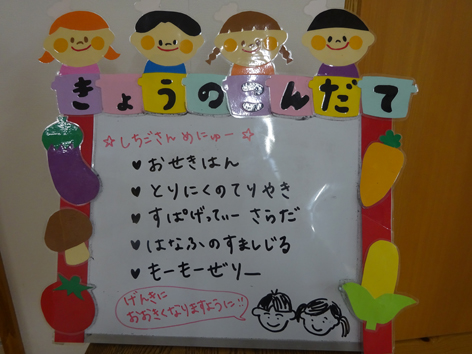 きょうのこんだて
☆しちごさんめにゅー☆
♥おせきはん
♥とりにくのてりやき
♥すぱげってぃー さらだ
♥はなふのすましじる
♥もーもーぜりー
げんきに
おおきくなりますように!!